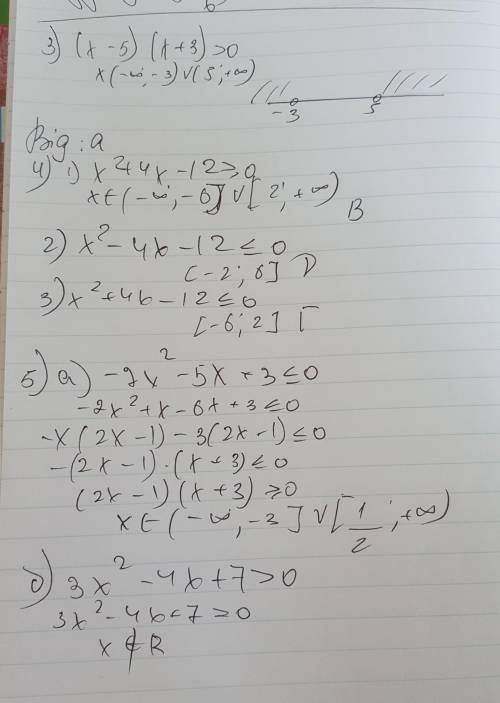 3) (x - 5) (x + 3) > 0
x (-∞; -3) ∨ (5; +∞)
-3 5
Від: а
4) 1) x² + 4x - 12 ≥ 0
x ∈ (-∞; -6] ∨ [2; +∞)
В
2) x² - 4x - 12 ≤ 0
[-2; 6] Д
3) x² + 4x - 12 ≤ 0
[-6; 2] Г
5) а) -2x² - 5x + 3 ≤ 0
-2x² + x - 6x + 3 ≤ 0
-x (2x - 1) - 3(2x - 1) ≤ 0
-(2x - 1) · (x + 3) ≤ 0
(2x - 1) (x + 3) ≥ 0
x ∈ (-∞, -3] ∨ [1/2; +∞)
б) 3x² - 4x + 7 > 0
3x² - 4x + 7 = 0
x ∉ R